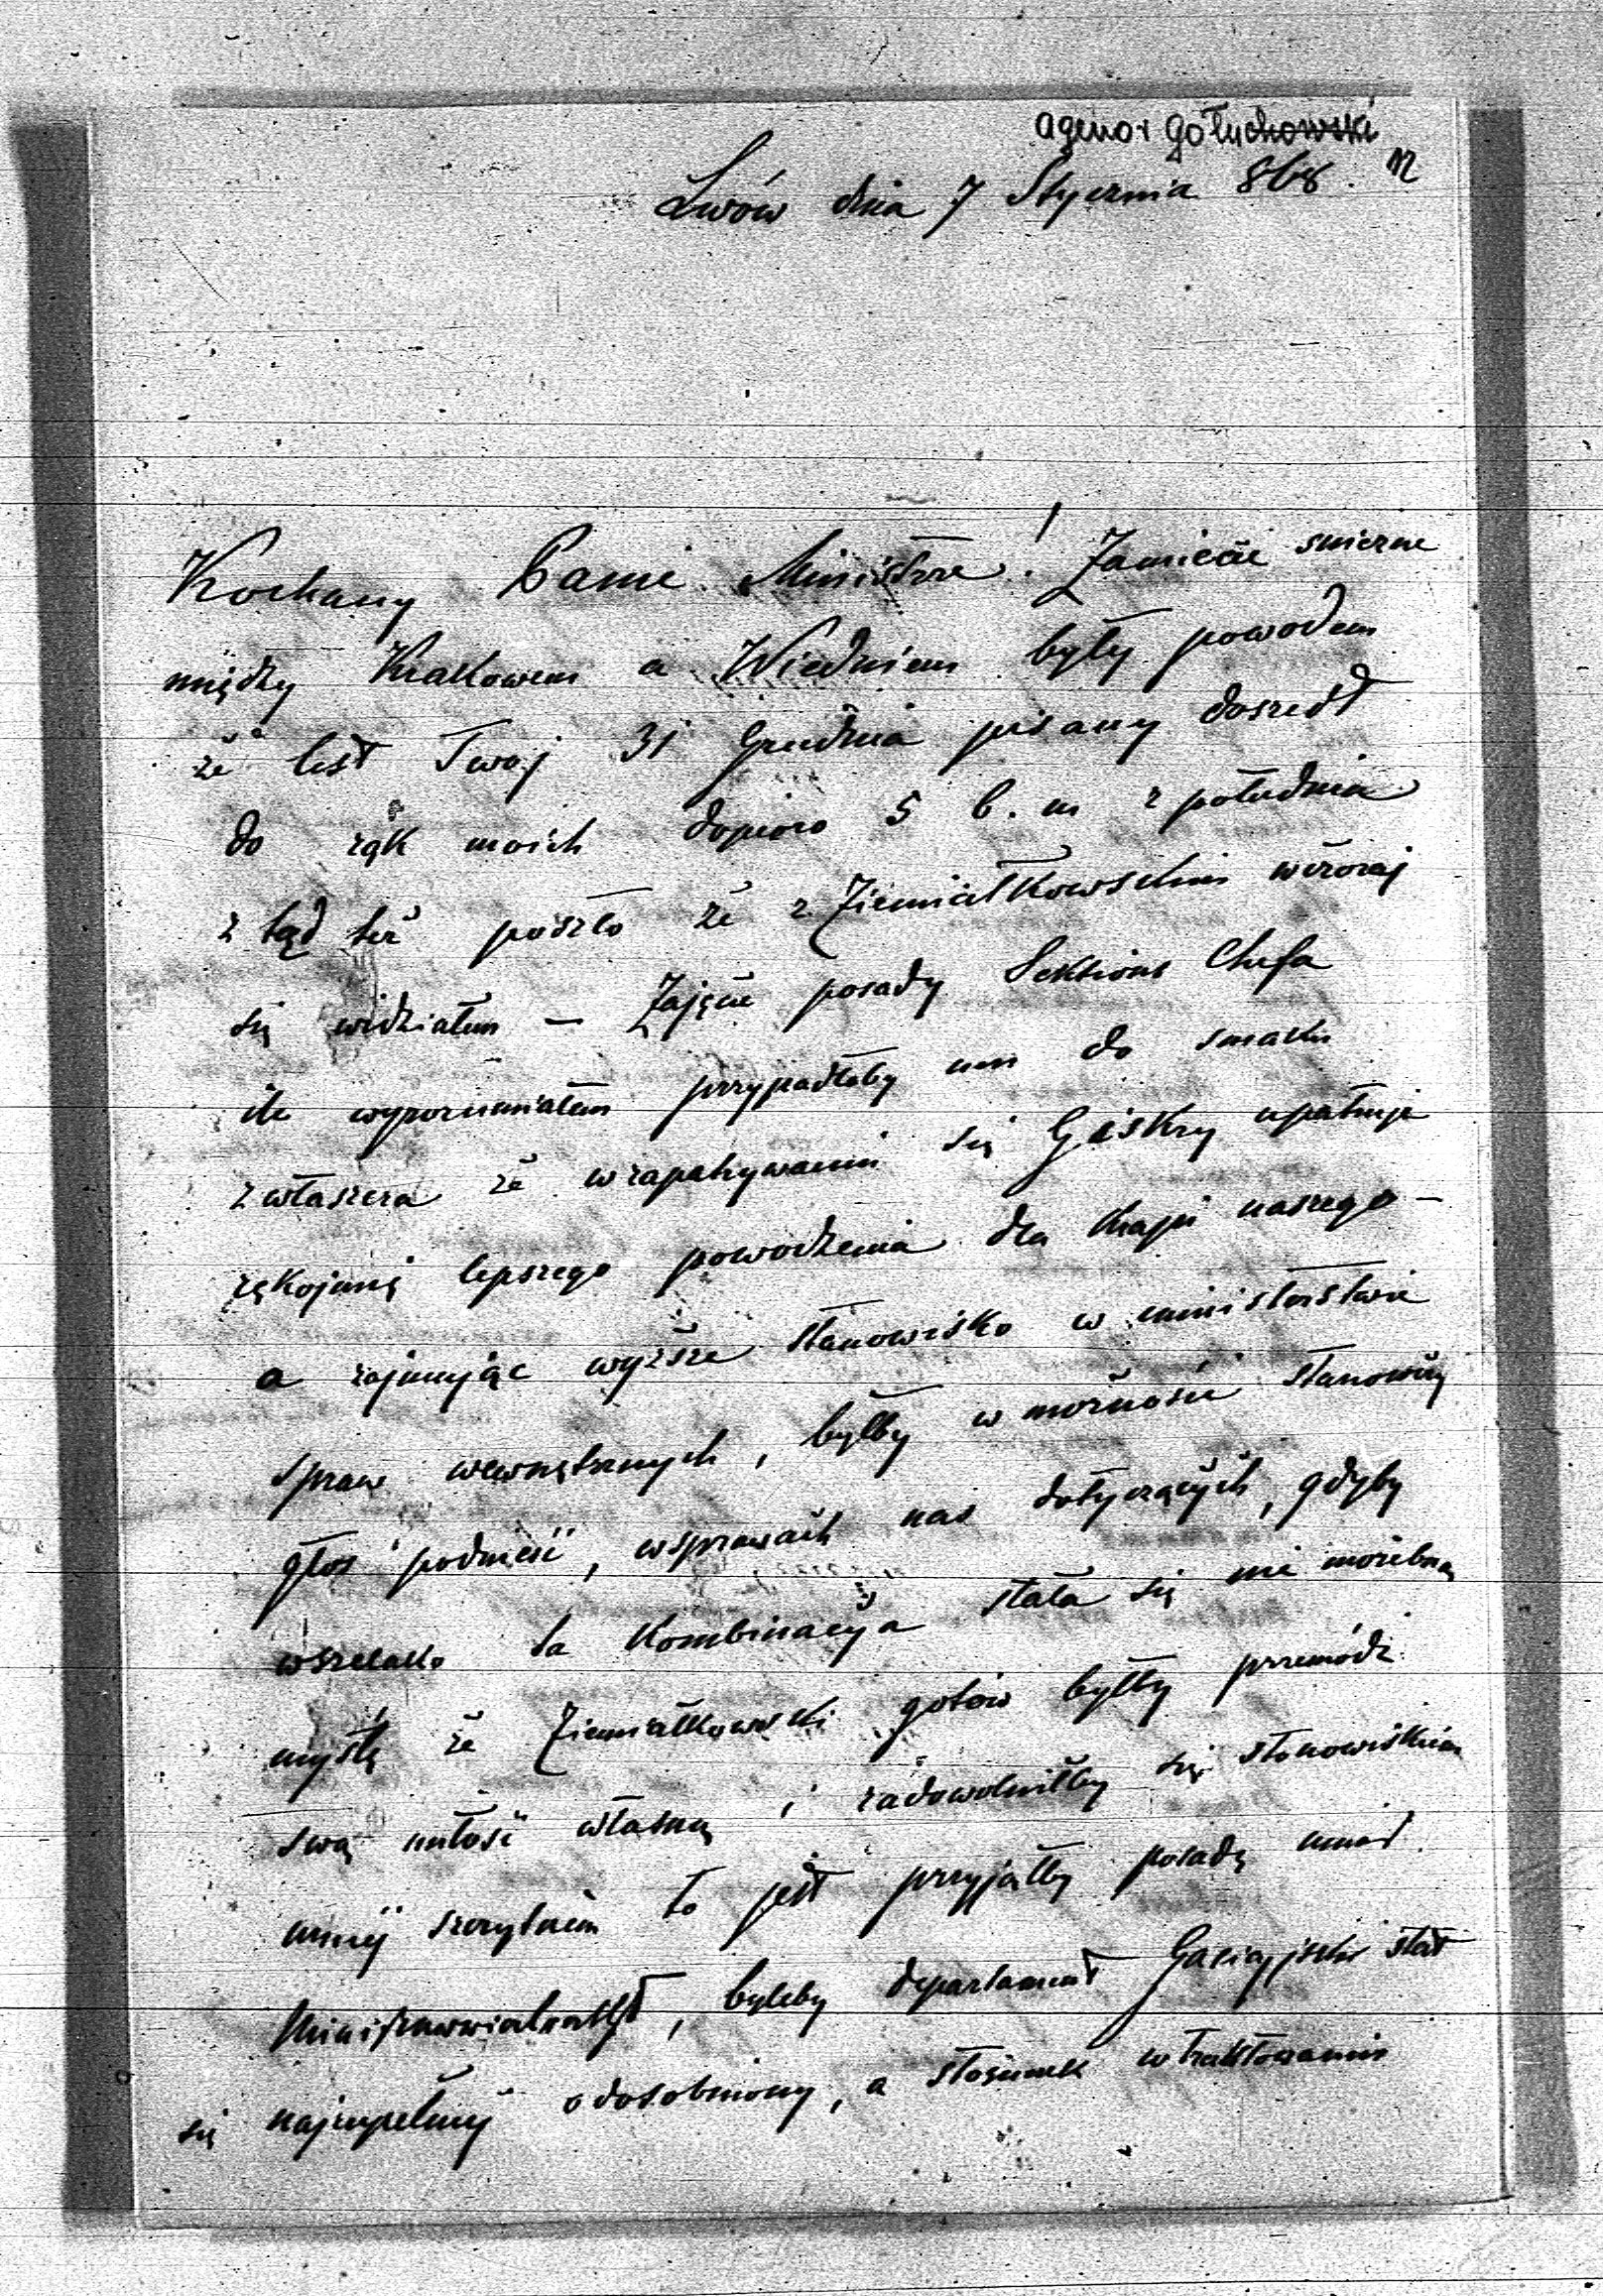 Agenor Gołuchowski
12
Lwów dnia 7 Stycznia 868.
Kochany Panie Ministrze! Zamiecie snieżne
między Krakowem a Wiedniem były powodem
że list Twoj 31 Grudnia pisany doszedł
do rąk moich dopiero 5 b. m z południa
z tąd też poszło że z Ziemiałkowskim wczoraj
się widziałem — Zajęcie posady Sektions Chefa
ile wyrozumiałem przypadłoby mu do smaku
zwłaszcza że w zapatrywaniu się Giskry upatruje
rękojmię lepszego powodzenia dla kraju naszego —
a zajmując wyższe stanowisko w ministerstwie
spraw wewnętrznych, byłby w możności stanowczy
głos podnieść, w sprawach nas dotyczących, gdyby
wszelako ta Kombinacyja stała się nie możebną
myślę że Ziemiałkowski gotów byłby przemódz
swą miłość własną i zadowolniłby się stanowiskiem
mniej szczytnem to jest przyjąłby posadę
Ministerrialrath, byleby departament Galicyjski stał
się najzupełniej odosobniony, a stosunek w traktowaniu